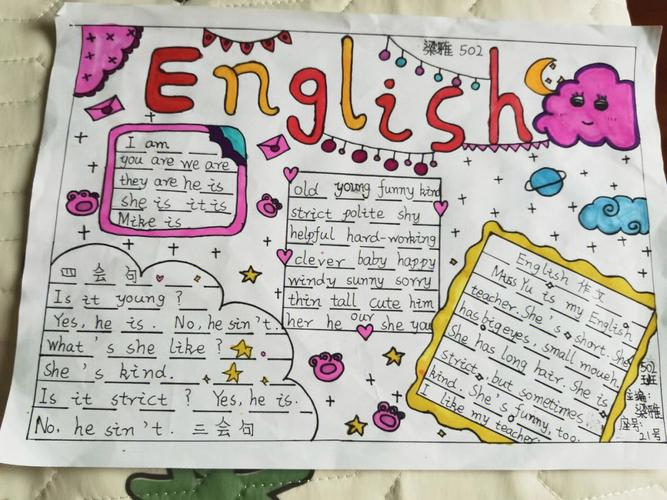 梁雅 502
English
I am
you are we are
they are he is
she is it is
Mike is
old young funny kind
strict polite shy
helpful hard-working
clever baby happy
windy sunny sorry
thin tall cute him
her he our she you
四会句
Is it young?
Yes, he is. No, he sin't.
what's she like?
She's kind.
Is it strict? Yes, he is.
No, he sin't. 三会句
English 作文
Miss Yu is my English
teacher. She's short. She
has big eyes, small moueh.
She has long hair. She is
strict, but sometimes
kind. She's funny, too.
I like my teacher
502
班
主编:
梁雅
座号:
21号